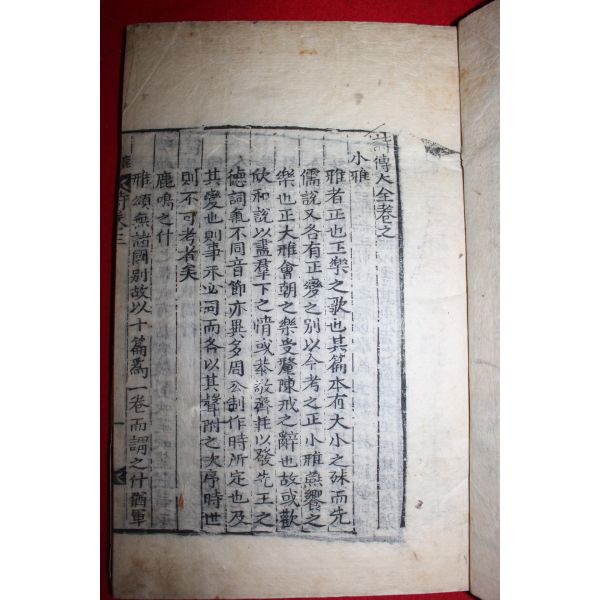 詩傳大全卷之
小雅
雅者正也正樂之歌也其篇本有大小之殊而先
儒說又各有正變之別以今考之正小雅燕饗之
樂也正大雅會朝之樂受釐陳戒之辭也故或歡
欣和說以盡羣下之情或恭敬齊莊以發先王之
德詞氣不同音節亦異多周公制作時所定也及
其變也則事未必同而各以其聲附之次序時世
則不可考者矣
鹿鳴之什
雅頌無諸國別故以十篇爲一卷而謂之什猶軍